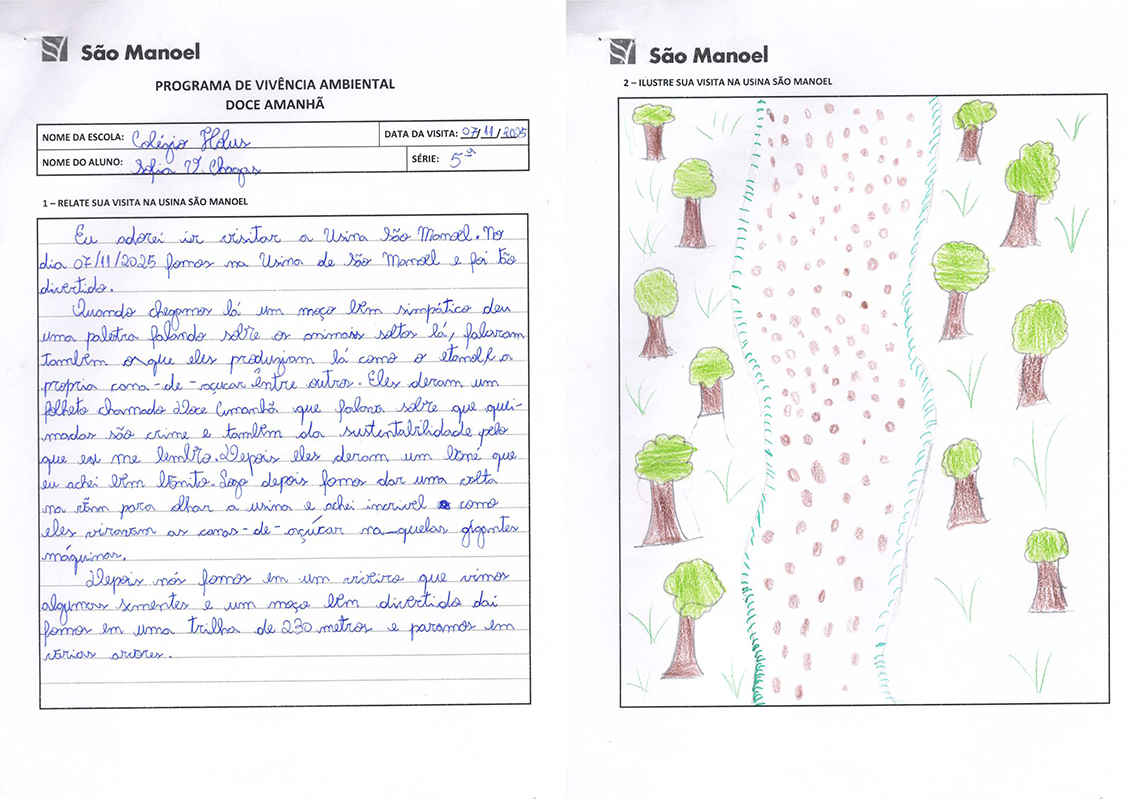 São Manoel
PROGRAMA DE VIVÊNCIA AMBIENTAL
DOCE AMANHÃ
NOME DA ESCOLA: Colégio Hólus DATA DA VISITA: 07/11/2025
NOME DO ALUNO: Sofia V. Chagas SÉRIE: 5º
1 – RELATE SUA VISITA NA USINA SÃO MANOEL
Eu adorei ir visitar a Usina São Manoel. No
dia 07/11/2025 fomos na Usina de São Manoel e foi tão
divertido.
Quando chegamos lá um moço bem simpático deu
uma palestra falando sobre os animais soltos lá, falaram
também o que eles produziam lá como o etanol, a
propria cana-de-açucar entre outros. Eles deram um
folheto chamado Doce Amanhã que falava sobre que quei-
madas são crime e também da sustentabilidade pelo
que eu me lembro. Depois eles deram um boné que
eu achei bem bonito. Logo depois fomos dar uma volta
na vãm para olhar a usina e achei incrivel como
eles viravam as canas-de-açúcar na_quelas gigantes
máquinas.
Depois nós fomos em um viveiro que vimos
algumas sementes e um moço bem divertido daí
fomos em uma trilha de 230 metros e paramos em
várias arvores.
São Manoel
2 – ILUSTRE SUA VISITA NA USINA SÃO MANOEL